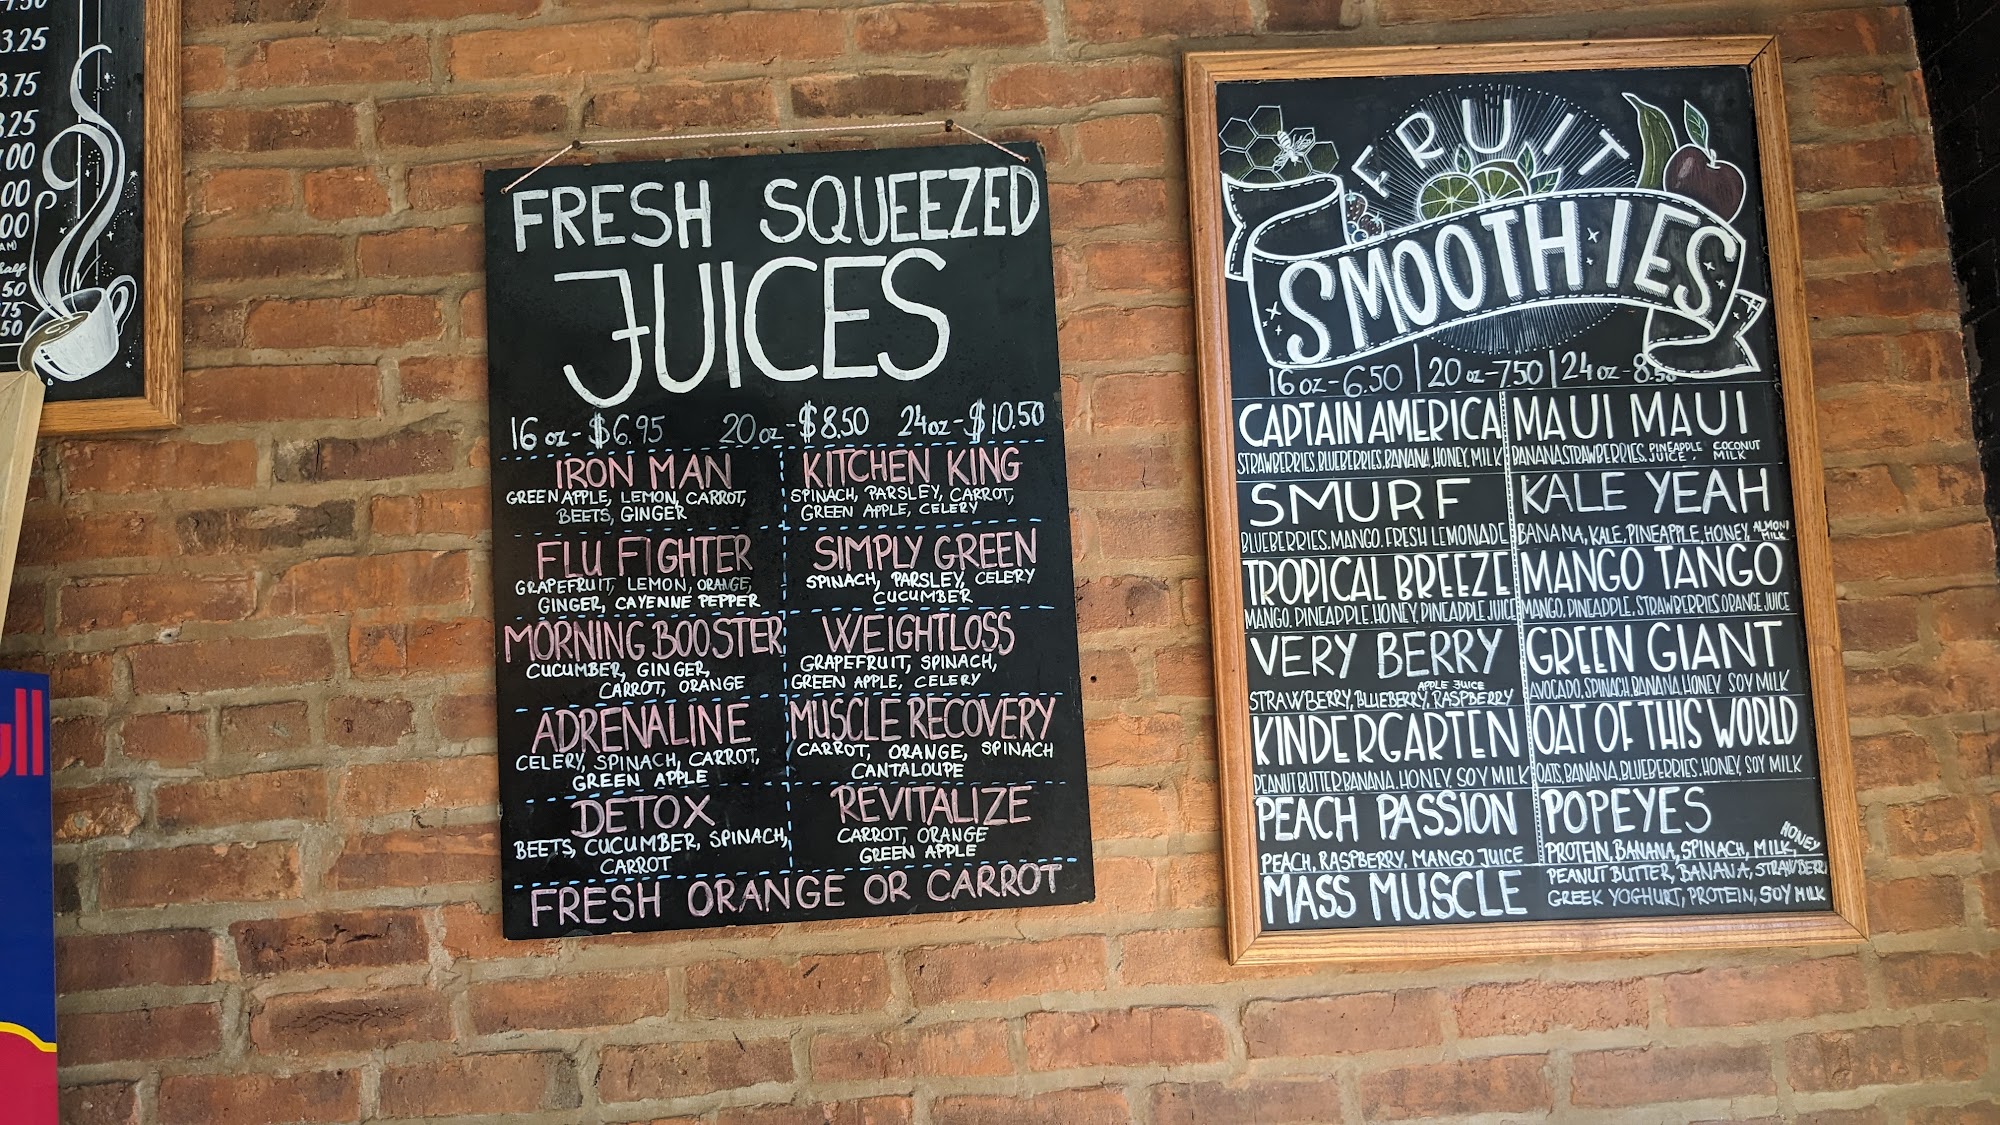 3.25
3.75
FRESH SQUEEZED
JUICES
16 oz- $6.95 20 oz-$8.50 24oz-$10.50
IRON MAN
GREEN APPLE, LEMON, CARROT,
BEETS, GINGER
FLU FIGHTER
GRAPEFRUIT, LEMON, ORANGE,
GINGER, CAYENNE PEPPER
MORNING BOOSTER
CUCUMBER, GINGER,
CARROT, ORANGE
ADRENALINE
CELERY, SPINACH, CARROT,
GREEN APPLE
DETOX
BEETS, CUCUMBER, SPINACH,
CARROT
KITCHEN KING
SPINACH, PARSLEY, CARROT,
GREEN APPLE, CELERY
SIMPLY GREEN
SPINACH, PARSLEY, CELERY
CUCUMBER
WEIGHTLOSS
GRAPEFRUIT, SPINACH,
GREEN APPLE, CELERY
MUSCLE RECOVERY
CARROT, ORANGE, SPINACH
CANTALOUPE
REVITALIZE
CARROT, ORANGE
GREEN APPLE
FRESH ORANGE OR CARROT
FRUIT
SMOOTHIES
16 oz-6.50 | 20 oz-7.50 | 24 oz-8.50
CAPTAIN AMERICA
STRAWBERRIES, BLUEBERRIES, BANANA, HONEY, MILK
SMURF
BLUEBERRIES, MANGO, FRESH LEMONADE
TROPICAL BREEZE
MANGO, PINEAPPLE, HONEY, PINEAPPLE JUICE
VERY BERRY
APPLE JUICE
STRAWBERRY, BLUEBERRY, RASPBERRY
KINDERGARTEN
PEANUT BUTTER, BANANA, HONEY, SOY MILK
PEACH PASSION
PEACH, RASPBERRY, MANGO JUICE
MASS MUSCLE
MAUI MAUI
BANANA STRAWBERRIES, PINEAPPLE JUICE, COCONUT MILK
KALE YEAH
BANANA, KALE, PINEAPPLE, HONEY, ALMOND MILK
MANGO TANGO
MANGO, PINEAPPLE, STRAWBERRIES, ORANGE JUICE
GREEN GIANT
AVOCADO, SPINACH, BANANA, HONEY SOY MILK
OAT OF THIS WORLD
OATS, BANANA, BLUEBERRIES, HONEY, SOY MILK
POPEYES
PROTEIN, BANANA, SPINACH, MILK, HONEY
PEANUT BUTTER, BANANA, STRAWBERRI
GREEK YOGHURT, PROTEIN, SOY MILK